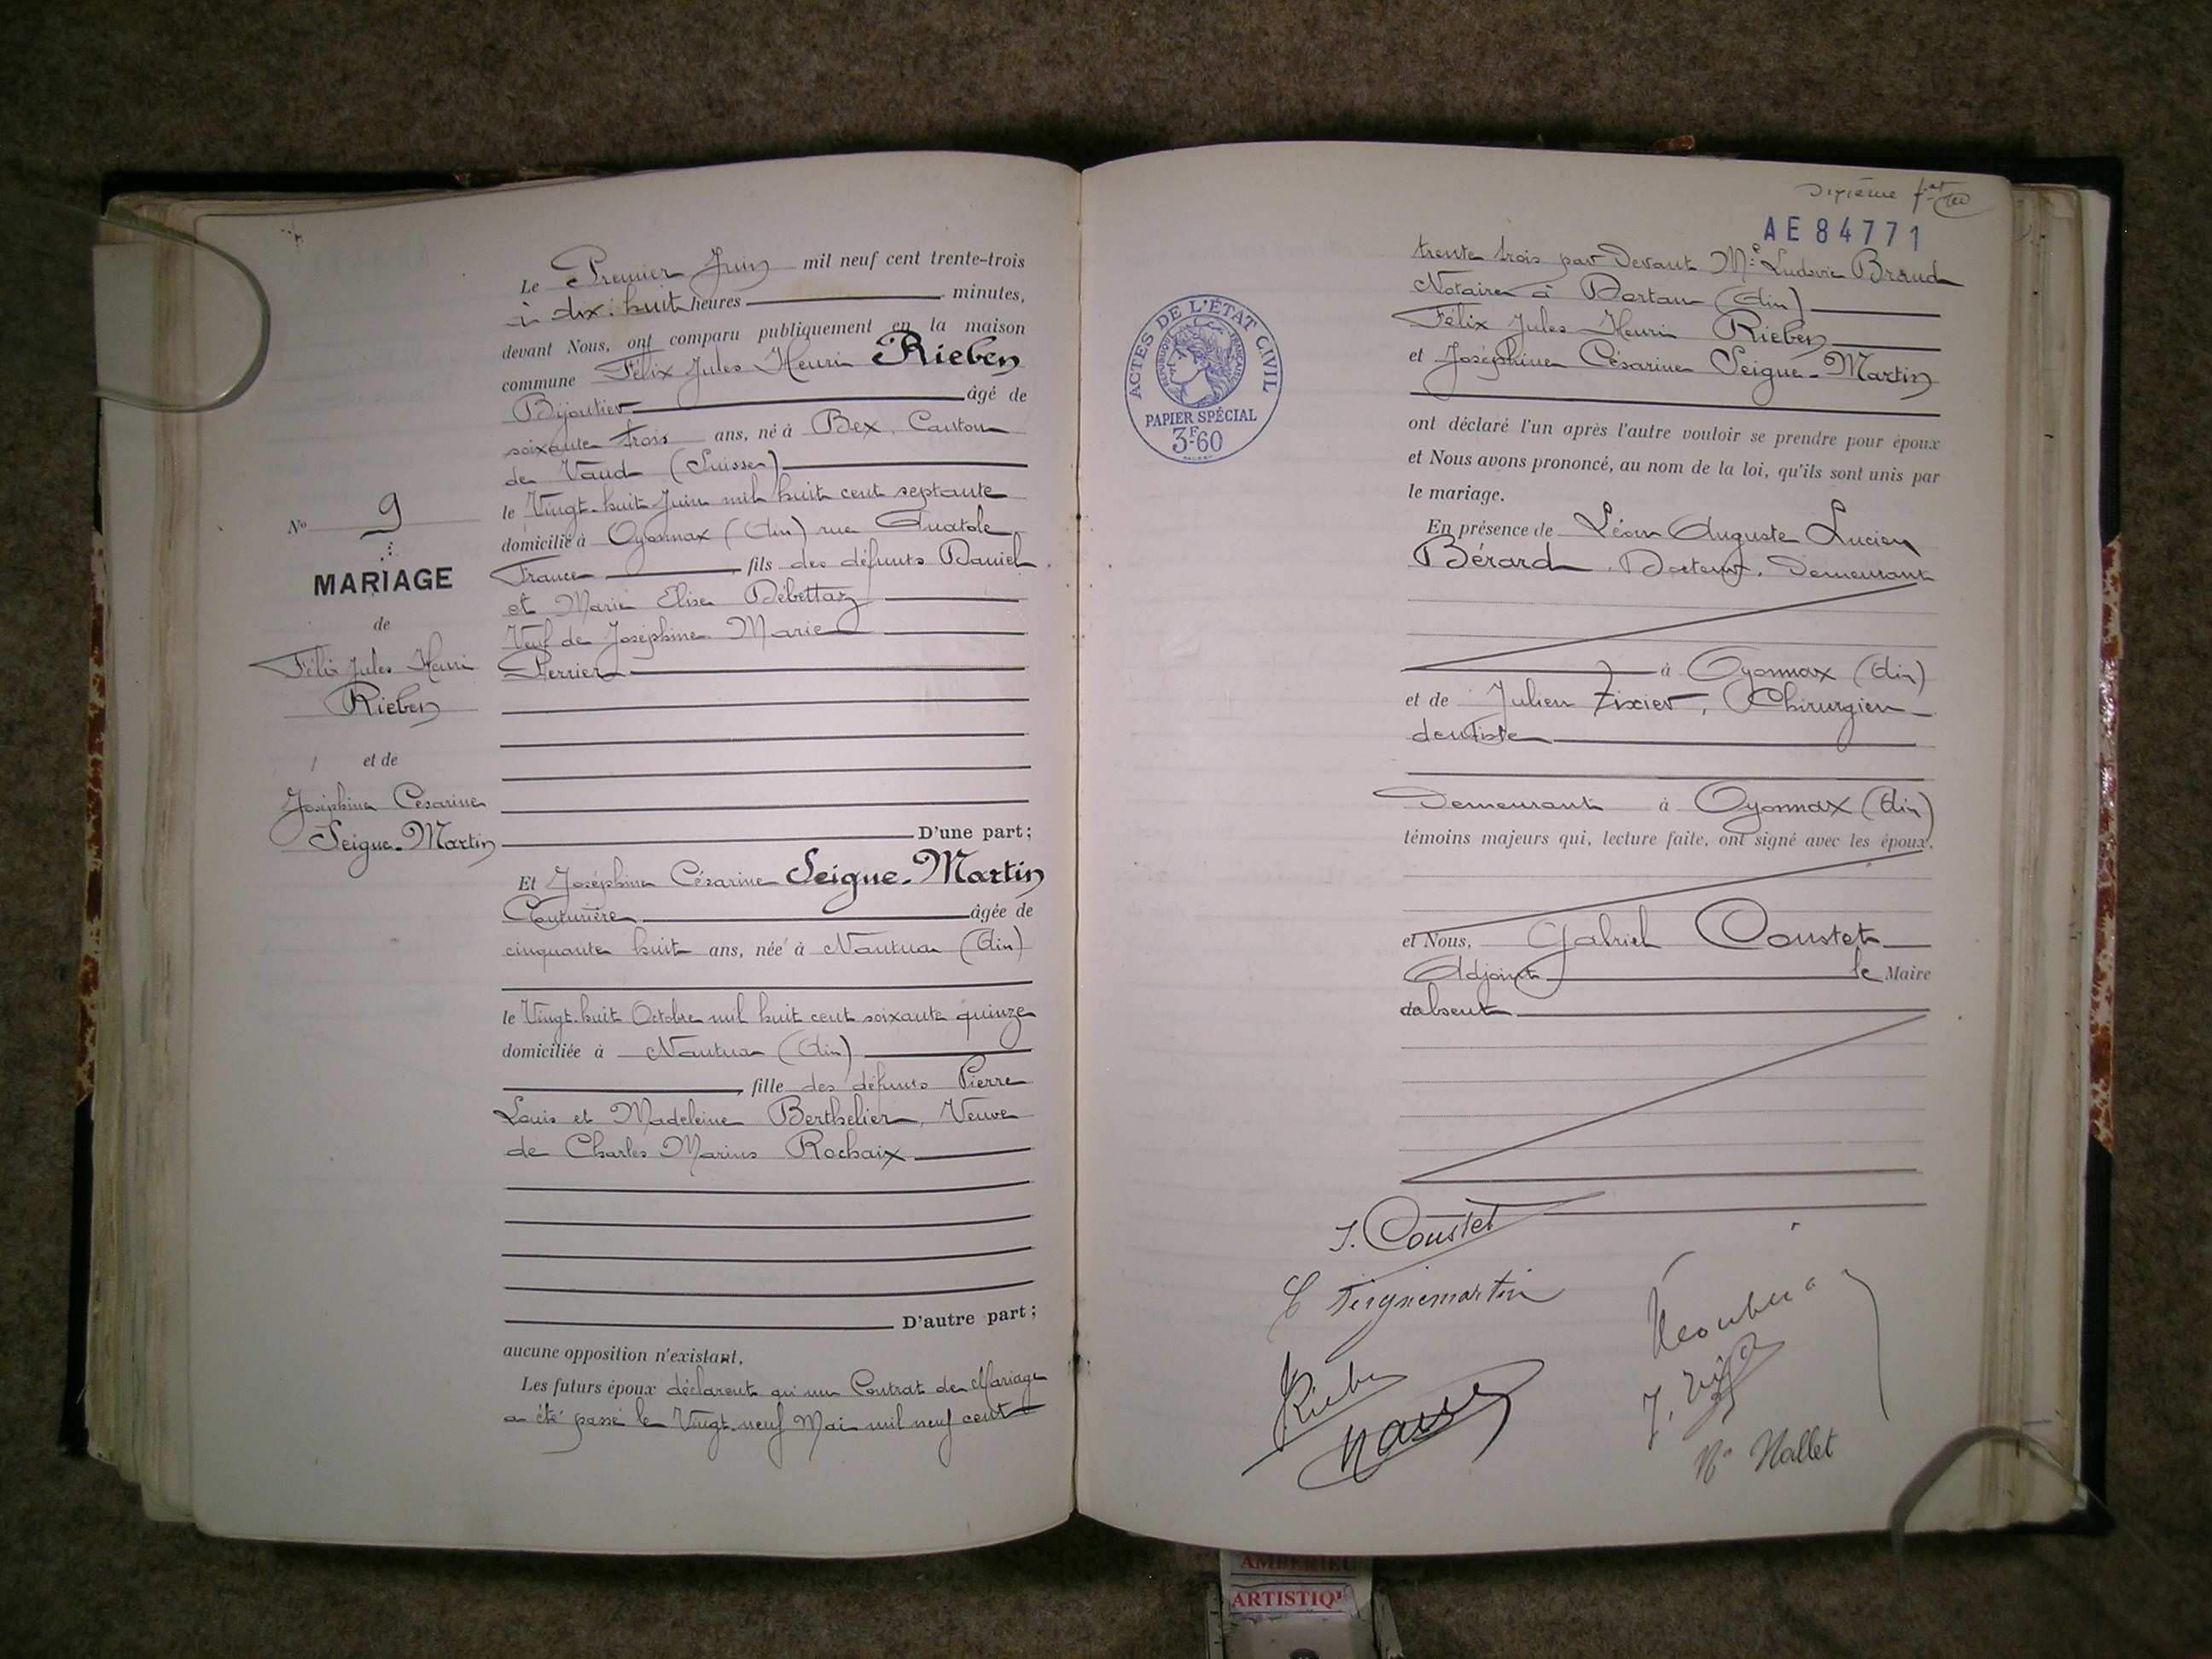 N° 9
MARIAGE
de
Félix Jules Henri
Rieben
et de
Joséphine Césarine
Seigne-Martin
Le Premier Juin mil neuf cent trente-trois
à dix-huit heures minutes,
devant Nous, ont comparu publiquement en la maison
commune Félix Jules Henri Rieben
Bijoutier âgé de
soixante trois ans, né à Bex, Canton
de Vaud (Suisse)
le Vingt-huit Juin mil huit cent septante
domicilié à Oyonnax (Ain) rue Anatole
France, fils des défunts Daniel
et Marie Elise Débettaz
Veuf de Joséphine Marie
Perrier
D'une part;
Et Joséphine Césarine Seigne-Martin
Couturière âgée de
cinquante huit ans, née à Nantua (Ain)
le Vingt-huit Octobre mil huit cent soixante quinze
domiciliée à Nantua (Ain)
, fille des défunts Pierre
Louis et Madeleine Berthelier, Veuve
de Charles Marius Rochaix
D'autre part;
aucune opposition n'existant,
Les futurs époux déclarent qu'un Contrat de Mariage
a été passé le Vingt-neuf Mai mil neuf cent
AE84771
trente trois par Devant Me Ludovic
Notaire à Dortan (Ain)
Félix Jules Henri Rieben
et Joséphine Césarine Seigne-Martin
ont déclaré l'un après l'autre vouloir se prendre pour époux
et Nous avons prononcé, au nom de la loi, qu'ils sont unis par
le mariage.
En présence de Léon Auguste Lucien
Bérard, Docteur, Demeurant
à Oyonnax (Ain)
et de Julien Tixier, Chirurgien
dentiste
Demeurant à Oyonnax (Ain)
témoins majeurs qui, lecture faite, ont signé avec les époux,
et Nous, Gabriel Coustet
Adjoint le Maire
absent
ACTES DE L'ÉTAT CIVIL
RÉPUBLIQUE FRANÇAISE
PAPIER SPÉCIAL
3F60
Coustet
Seignemartin
Rieben
Nallet
AMBERIEU
ARTISTIQ